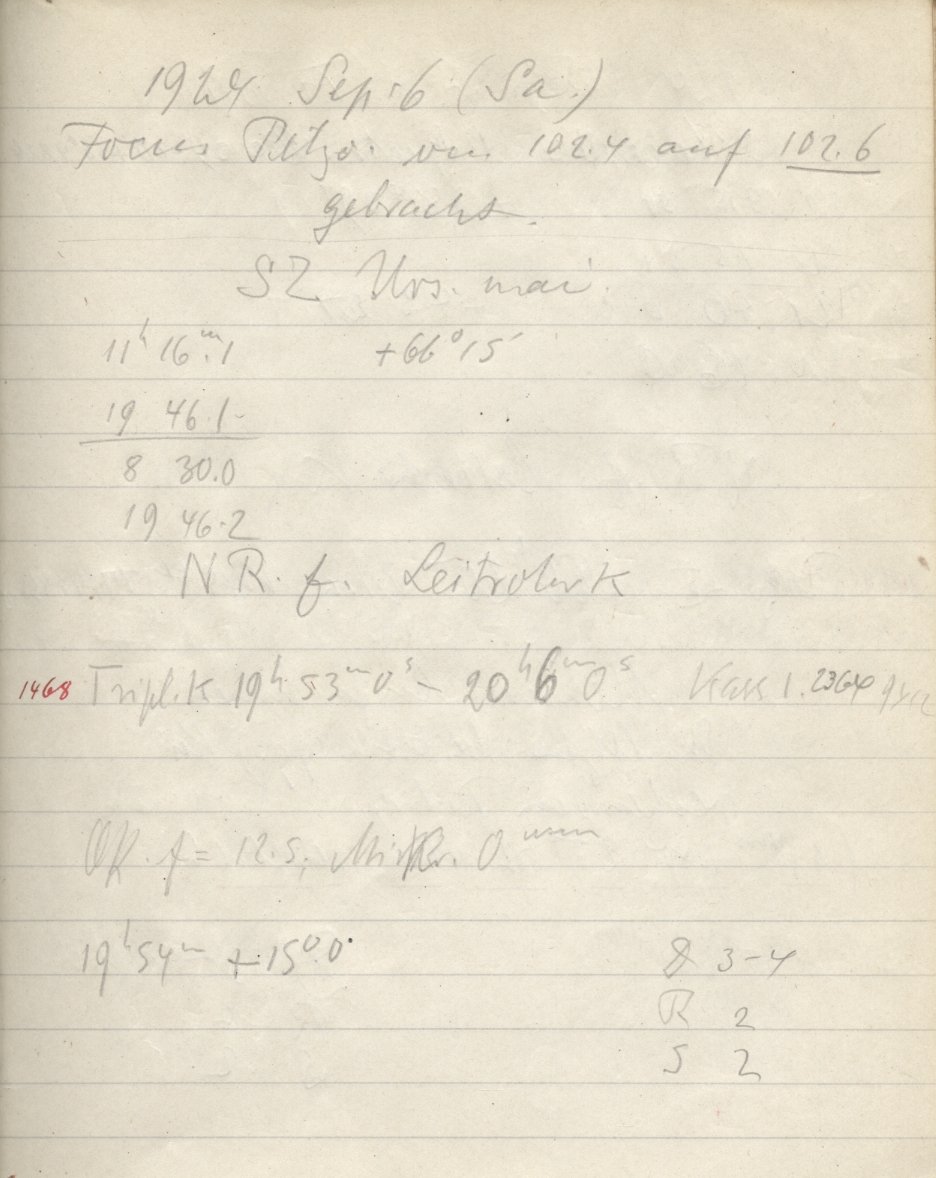 1924 Sep. 6 (Sa.)
Focus Petzv. von 102.4 auf 102.6
gebracht.
SZ Urs. mai.
11h 16m.1 +66° 15'
19 46.1
8 30.0
19 46.2
NR. f. Leitrohr K
1468 Triplk 19h 53m 0s – 20h 6m 0s Kass 1. 2364
f = 12.5; 0. mm
19h 54m +15°.0
D 3-4
R 2
S 2